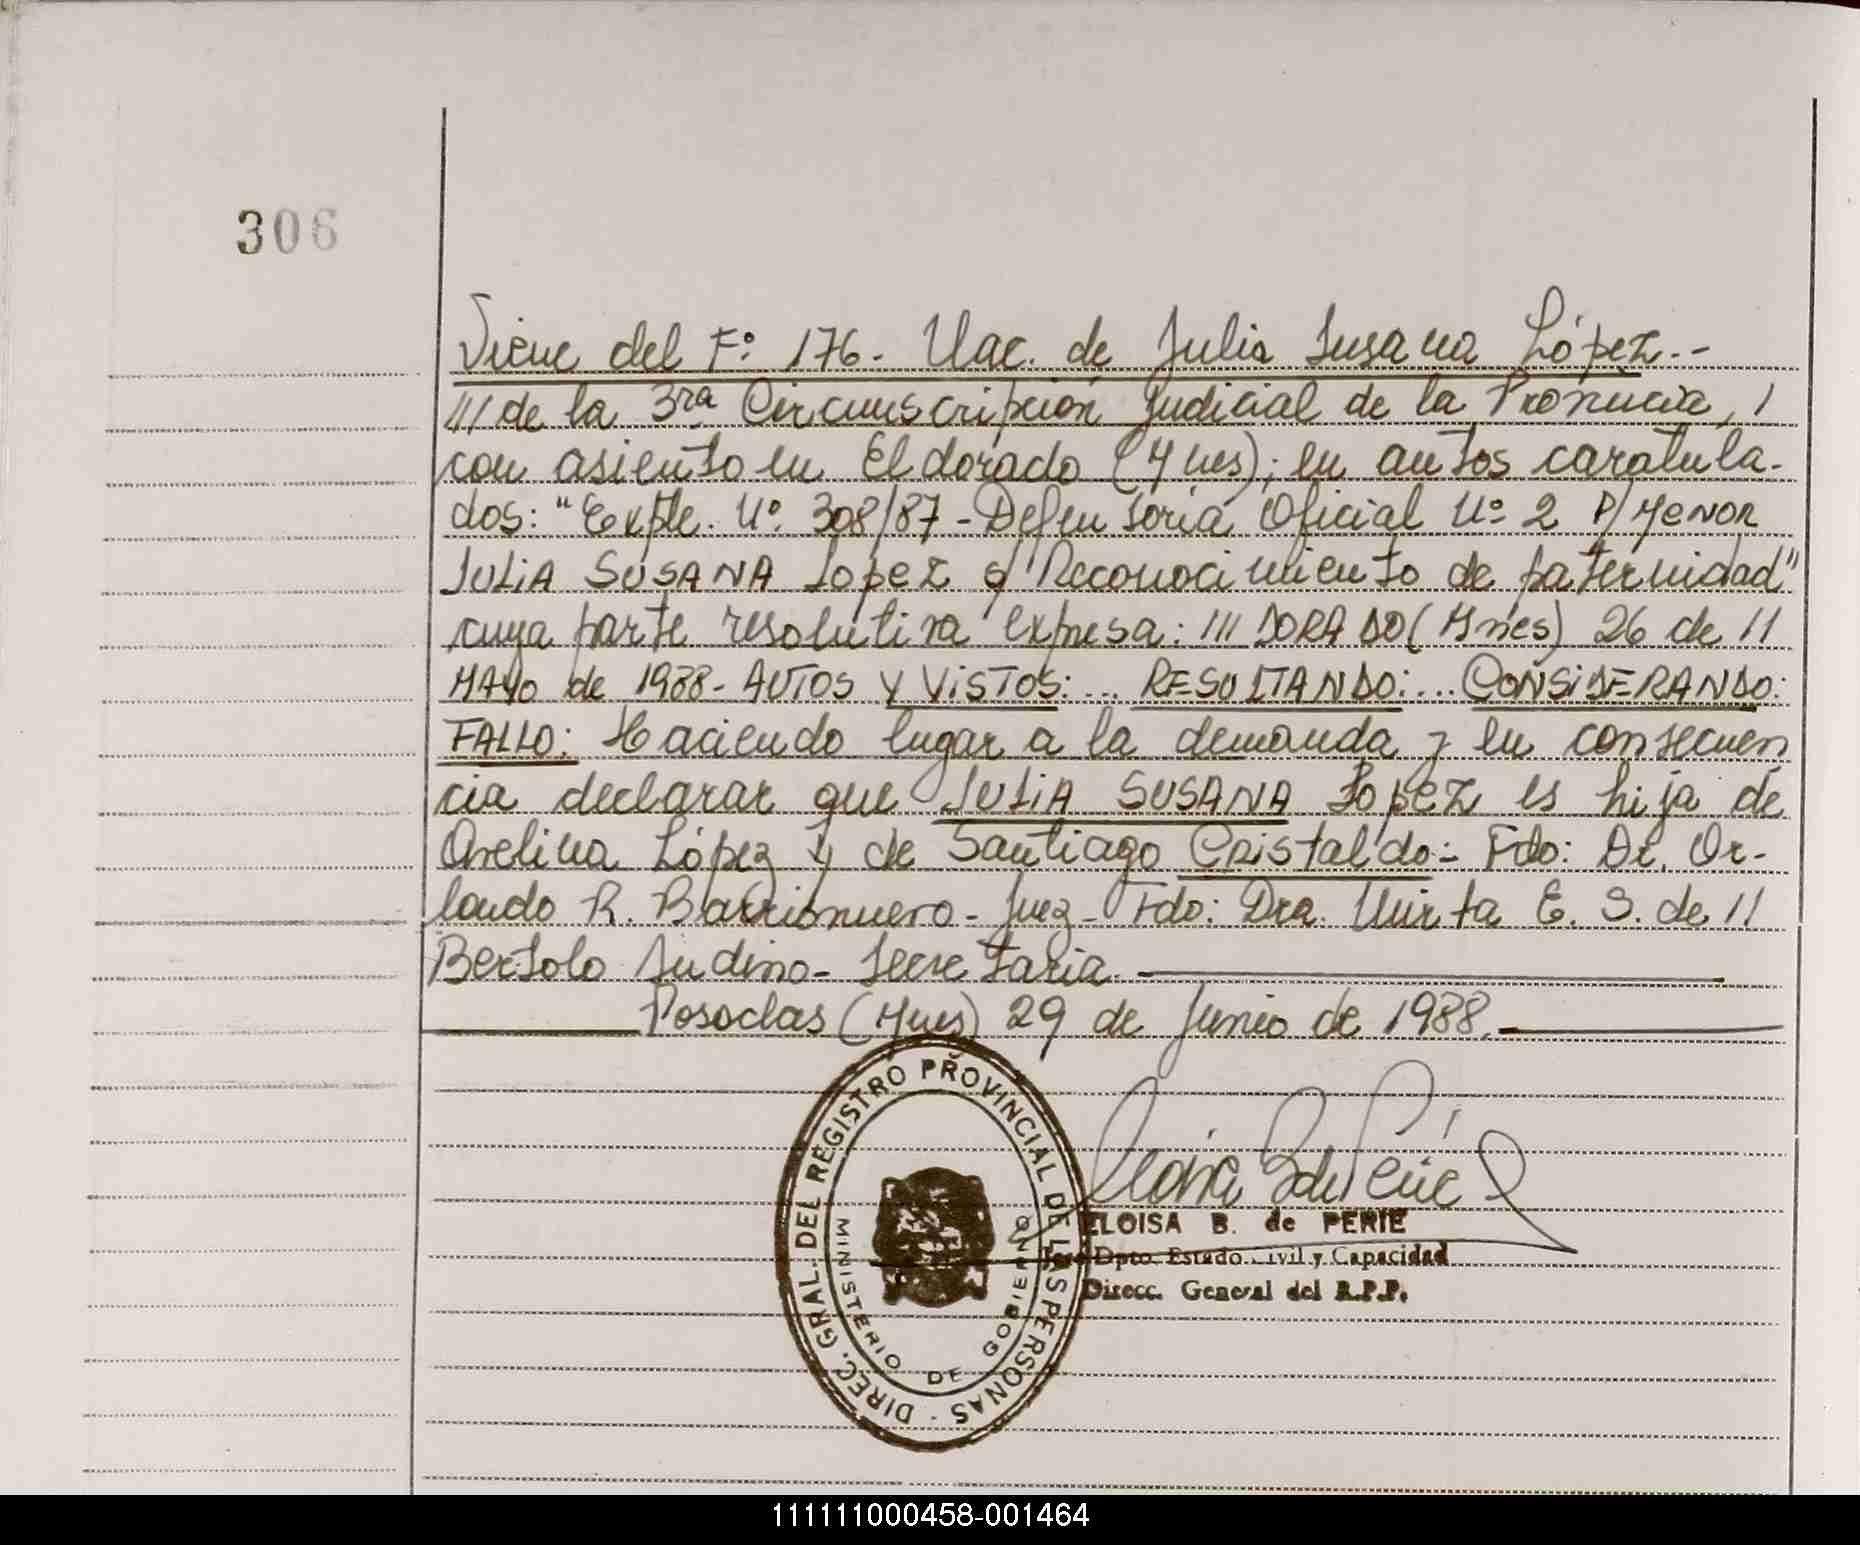 306
Viene del Fº 176. Nac. de Julia Susana López.-
/// de la 3ra Circunscripción Judicial de la Provincia, /
con asiento en Eldorado (Mnes); en autos caratula-
dos: "Expte. Nº. 308/87 - Defensoría Oficial Nº 2 P/Menor
JULIA SUSANA López s/ Reconocimiento de paternidad"
cuya parte resolutiva expresa: /// DORADO (Mnes) 26 de //
MAYO de 1988 - AUTOS Y VISTOS: ... RESULTANDO: ... CONSIDERANDO:
FALLO: Haciendo lugar a la demanda y en consecuen
cia declarar que JULIA SUSANA López es hija de
Avelina López y de Santiago Cristaldo - Fdo: Dr. Or-
lando R. Barrionuevo - Juez - Fdo: Dra. Mirta E. S. de //
Bertolo Sudino - Secretaria
Posadas (Mnes) 29 de Junio de 1988.
DIREC. GRAL. DEL REGISTRO PROVINCIAL DE LAS PERSONAS -
MINISTERIO DE GOBIERNO
ELOISA B. de PERIE
Jefe Dpto. Estado Civil y Capacidad
Direcc. General del R.P.P.
111111000458-001464